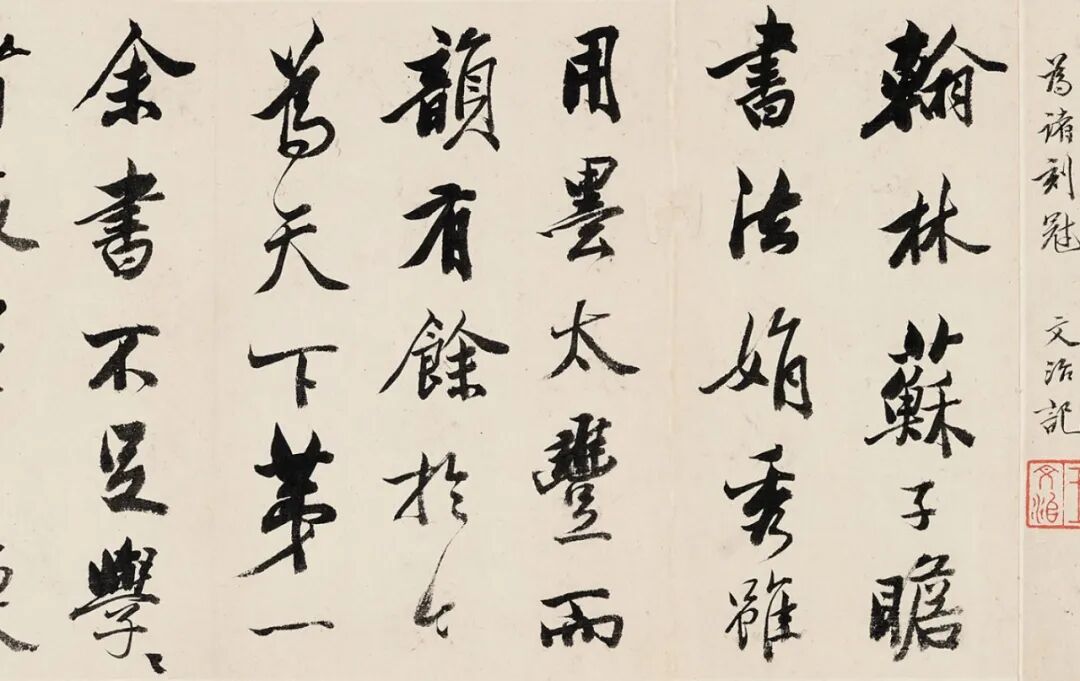 為諸刻冠 文治記
王文治
翰林蘇子瞻
書法娟秀雖
用墨太豐而
韻有餘於今
為天下第一
余書不足學〻